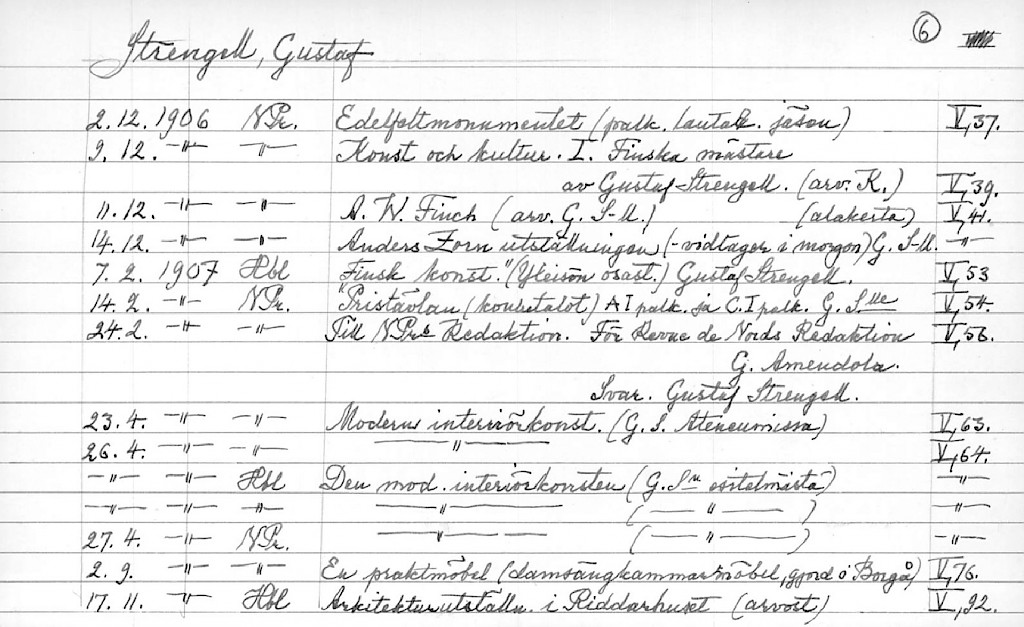 6
Strengell, Gustaf
2.12. 1906 NPr. Edelfeltmonumentet (palk. lautak. jäsen) V,37.
9.12. -"- -"- Konst och kultur. I. Finska mästare
av Gustaf Strengell. (arv. K.) V,39.
11.12. -"- -"- A. W. Finch (arv. G. S-ll.) (alakerta) V,41.
14.12. -"- -"- Anders Zorn utställningen (-vidtager i morgon) G. S-ll. -"-
7.2. 1907 Hbl Finsk konst." (Yleisön osast.) Gustaf Strengell. V,53
14.2. -"- NPr. "Pristävlan (konetalot) A I palk. ja C. I palk. G. S. V,54.
24.2. -"- -"- Till NPrs Redaktion. För Revue de Nords Redaktion V,56.
G. Amendola.
Svar. Gustaf Strengell.
23.4. -"- -"- Modern interiörkonst. (G. S. Ateneumissa) V,63.
26.4. -"- -"- -"- V,64.
-"- -"- Hbl Den mod. interiörkonsten (G. Sn esitelmästä) -"-
-"- -"- -"- -"- (-"-) -"-
27.4. -"- NPr. -"- (-"-) -"-
2.9. -"- -"- En praktmöbel (damsängkammarmöbel, gjord i Borgå) V,76.
17.11. -"- Hbl Arkitekturutställn. i Riddarhuset (arvost) V,92.